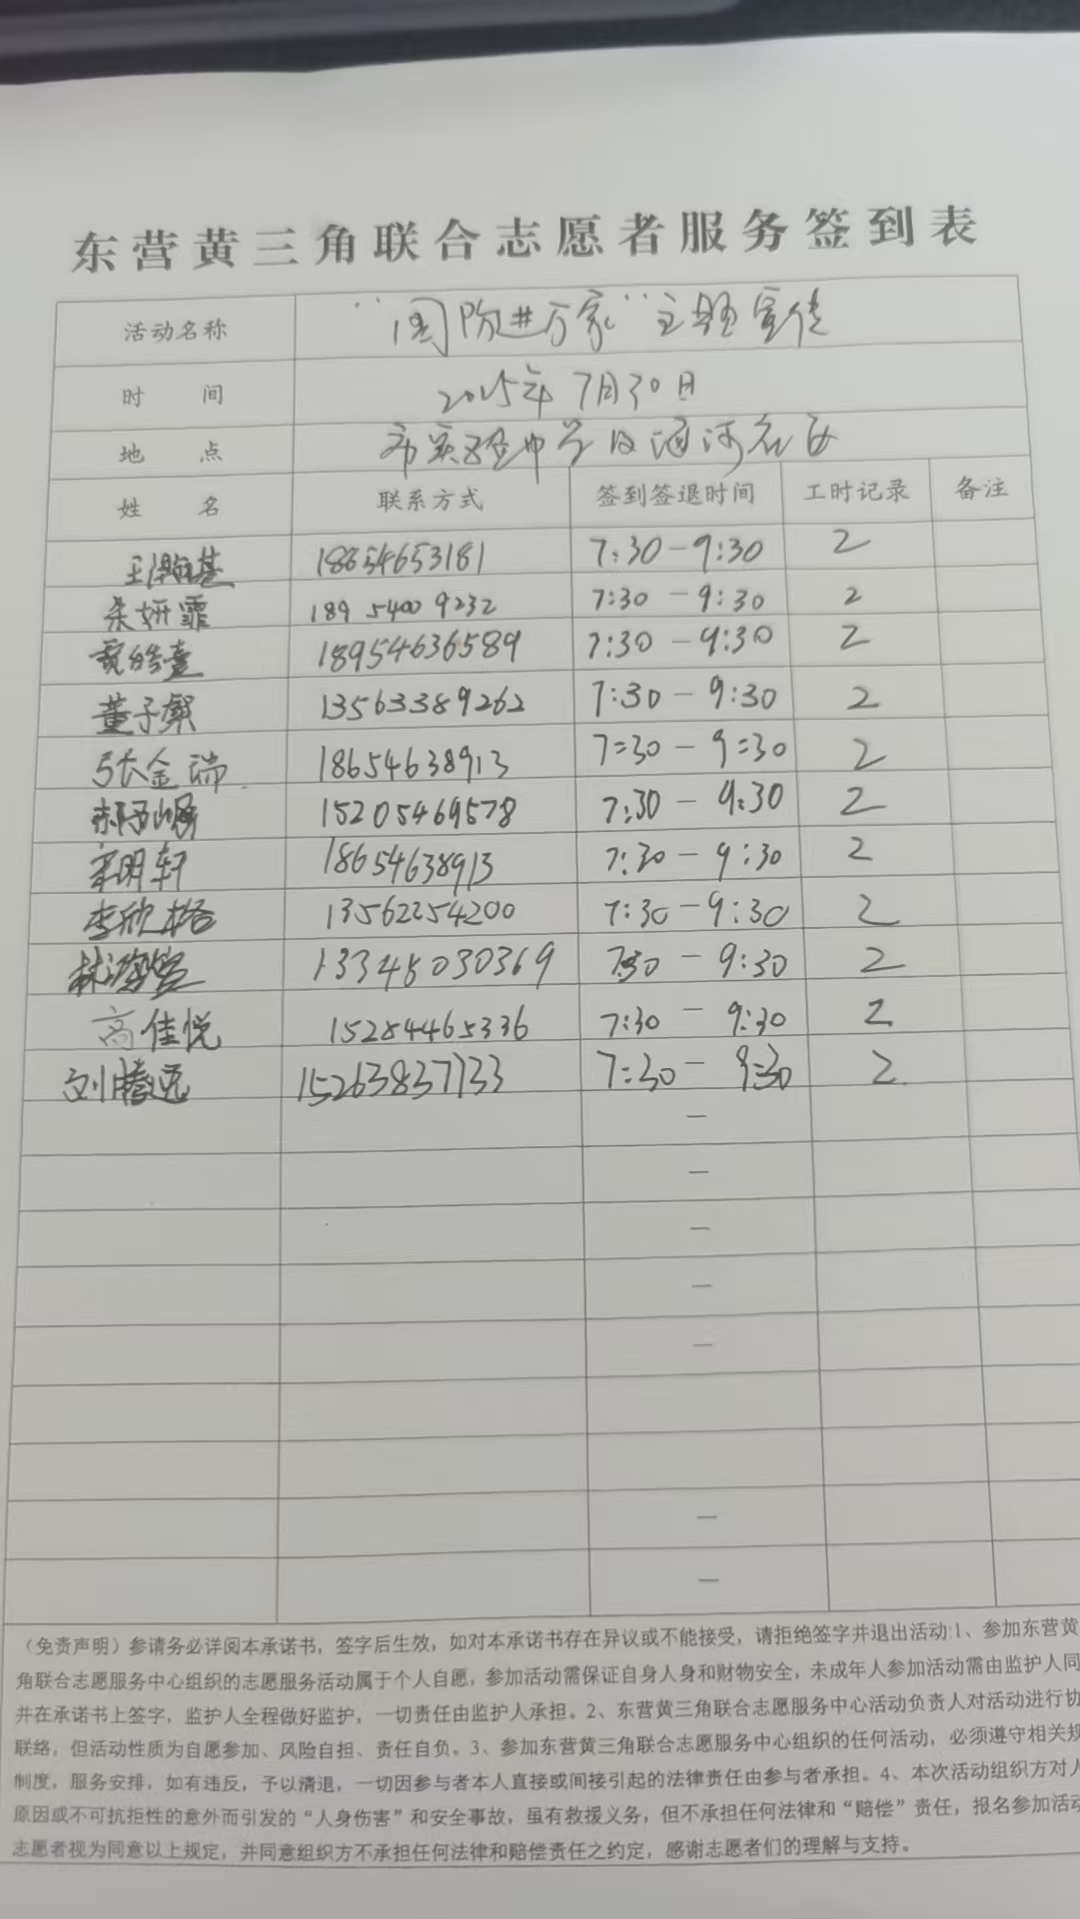 东营黄三角联合志愿者服务签到表
活动名称 "国防进万家"主题宣传
时 间 2025年7月30日
地 点 市实验中学及通河社区
姓 名 联系方式 签到签退时间 工时记录 备注
王瀚基 18654653181 7:30-9:30 2
朱妍霏 18954009232 7:30-9:30 2
18954636589 7:30-9:30 2
董子粲 13563389262 7:30-9:30 2
张金瑞 18654638913 7:30-9:30 2
15205469578 7:30-9:30 2
明轩 18654638913 7:30-9:30 2
李欣格 13562254200 7:30-9:30 2
13345030369 7:30-9:30 2
高佳悦 15284465336 7:30-9:30 2
刘腾远 15263837733 7:30-9:30 2
—
—
—
—
—
—
—
(免责声明)参请务必详阅本承诺书,签字后生效,如对本承诺书存在异议或不能接受,请拒绝签字并退出活动:1、参加东营黄
角联合志愿服务中心组织的志愿服务活动属于个人自愿,参加活动需保证自身人身和财物安全,未成年人参加活动需由监护人同
并在承诺书上签字,监护人全程做好监护,一切责任由监护人承担。2、东营黄三角联合志愿服务中心活动负责人对活动进行协
联络,但活动性质为自愿参加、风险自担、责任自负。3、参加东营黄三角联合志愿服务中心组织的任何活动,必须遵守相关规
制度,服务安排,如有违反,予以清退,一切因参与者本人直接或间接引起的法律责任由参与者承担。4、本次活动组织方对人
原因或不可抗拒性的意外而引发的“人身伤害”和安全事故,虽有救援义务,但不承担任何法律和“赔偿”责任,报名参加活动
志愿者视为同意以上规定,并同意组织方不承担任何法律和赔偿责任之约定,感谢志愿者们的理解与支持。